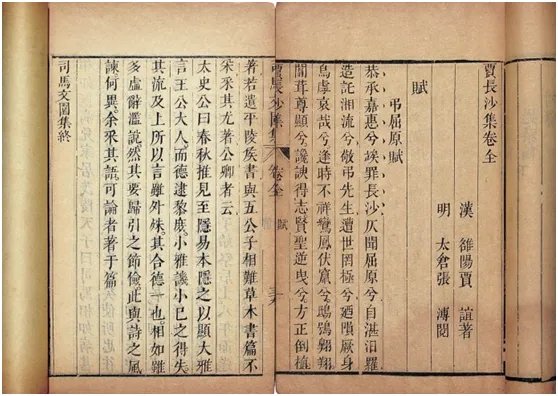 賈長沙集卷全
漢 雒陽賈 誼著
明 太倉張 溥閱
賦
弔屈原賦
恭承嘉惠兮竢罪長沙仄聞屈原兮自湛汨羅
造託湘流兮敬弔先生遭世罔極兮廼隕厥身
烏虖哀哉兮逢時不祥鸞鳳伏竄兮鴟鴞翱翔
闒茸尊顯兮讒諛得志賢聖逆曳兮方正倒植
賈長沙集 卷全 賦
著若遺平陵侯書與五公子相難草木書篇不
采采其尤著公卿者云
太史公曰春秋推見至隱易本隱之以顯大雅
言王公大人而德逮黎庶小雅譏小已之得失
其流及上所以言雖外殊其合德一也相如雖
多虛辭濫說然其要歸引之節儉此與詩之風
諫何異余采其語可論者著于篇
司馬文園集終